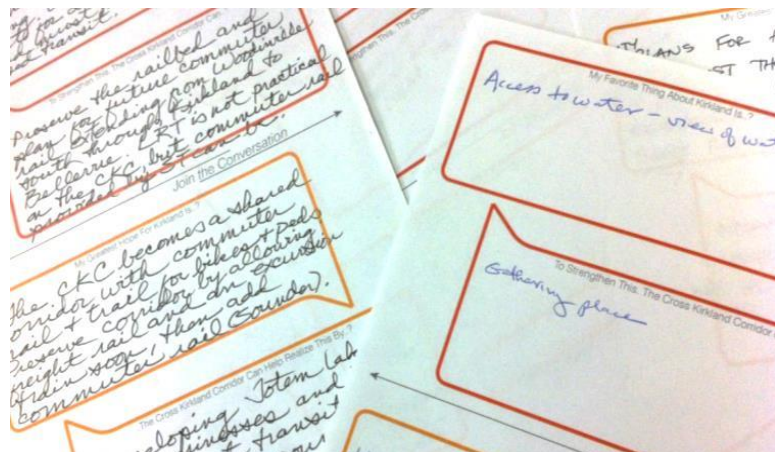 transit.
To Strengthen This, The Cross Kirkland Corridor Can
Preserve the railbed and
plan for future commuter
rail extending from Woodinville
south through Kirkland to
Bellevue. LRT is not practical
on the CKC, but commuter rail
provided by ST can be.
Join the Conversation
My Greatest Hope For Kirkland Is..?
The CKC becomes a shared
corridor with commuter
rail + trail for bikes + peds
Preserve corridor by allowing
freight rail and an excursion
train soon, then add
commuter rail (Sounder).
The Cross Kirkland Corridor Can Help Realize This By..?
Totem Lake
and
transit
My Favorite Thing About Kirkland Is..?
Access to water – view of wat
To Strengthen This, The Cross Kirkland Corridor
Gathering place
My Greatest
FOR
ST TH